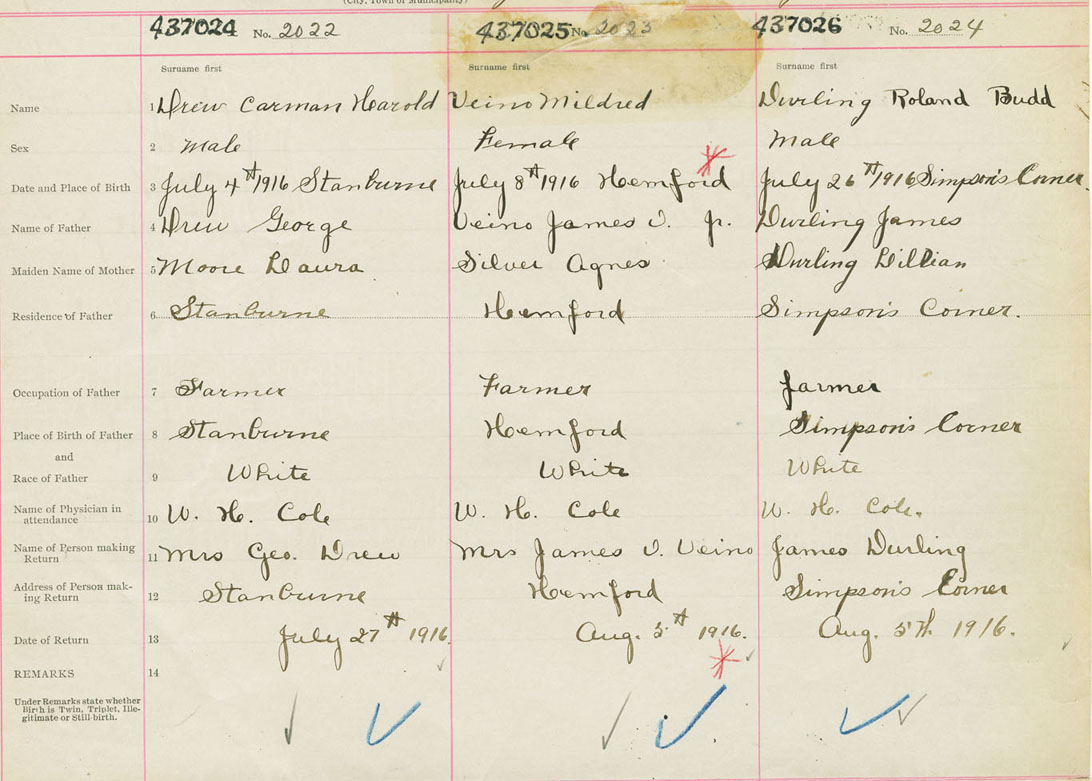 (City, Town or Municipality)
437024 No. 2022 437025 No. 2023 437026 No. 2024
Surname first Surname first Surname first
Name 1 Drew Carman Harold Veino Mildred Durling Roland Budd
Sex 2 Male Female Male
Date and Place of Birth 3 July 4th 1916 Stanburne July 8th 1916 Hemford July 26th 1916 Simpson's Corner.
Name of Father 4 Drew George Veino James V. jr. Durling James
Maiden Name of Mother 5 Moore Laura Silver Agnes Durling Lillian
Residence of Father 6 Stanburne Hemford Simpson's Corner.
Occupation of Father 7 Farmer Farmer farmer
Place of Birth of Father 8 Stanburne Hemford Simpson's Corner
and
Race of Father 9 White White White
Name of Physician in
attendance 10 W. H. Cole W. H. Cole W. H. Cole.
Name of Person making
Return 11 Mrs Geo. Drew Mrs James V. Veino James Durling
Address of Person mak-
ing Return 12 Stanburne Hemford Simpson's Corner
Date of Return 13 July 27th 1916. Aug. 5th 1916. Aug. 5th 1916.
REMARKS 14
Under Remarks state whether
Birth is Twin, Triplet, Ille-
gitimate or Still-birth.